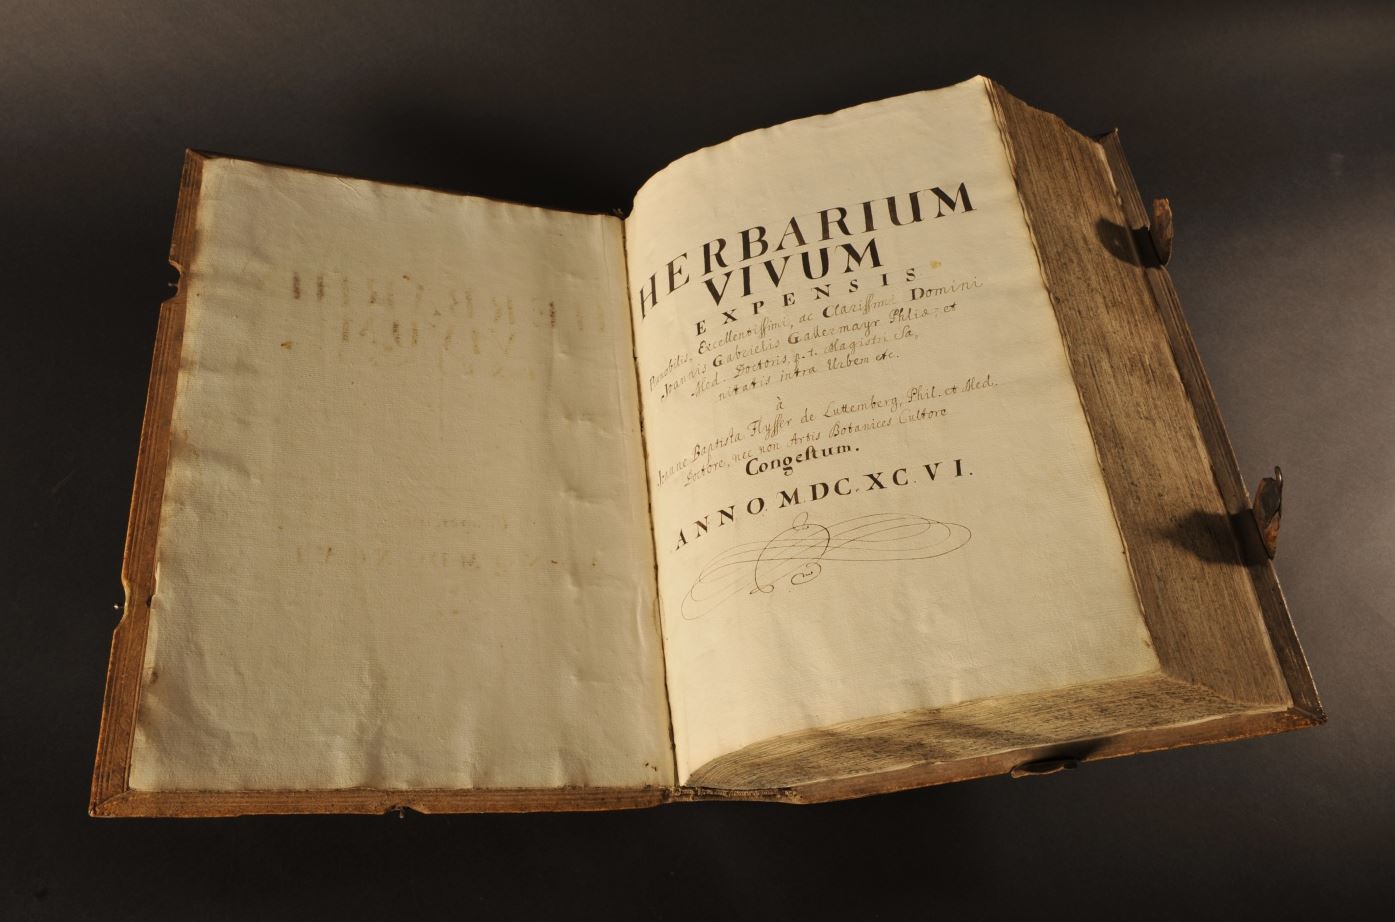 HERBARIUM
VIVUM
EXPENSIS
Excellentissimi, ac Clarissimi Domini
Joannis Gabrielis Gallermayr Philiæ: et
Med. Doctoris, p. t. Magistri Sa,
nitatis intra Urbem etc.
à
Joanne Baptista Flysser de Luttemberg, Phil. et Med.
Doctore, nec non Artis Botanices Cultore
Congestum.
ANNO. MDC. XC. VI.